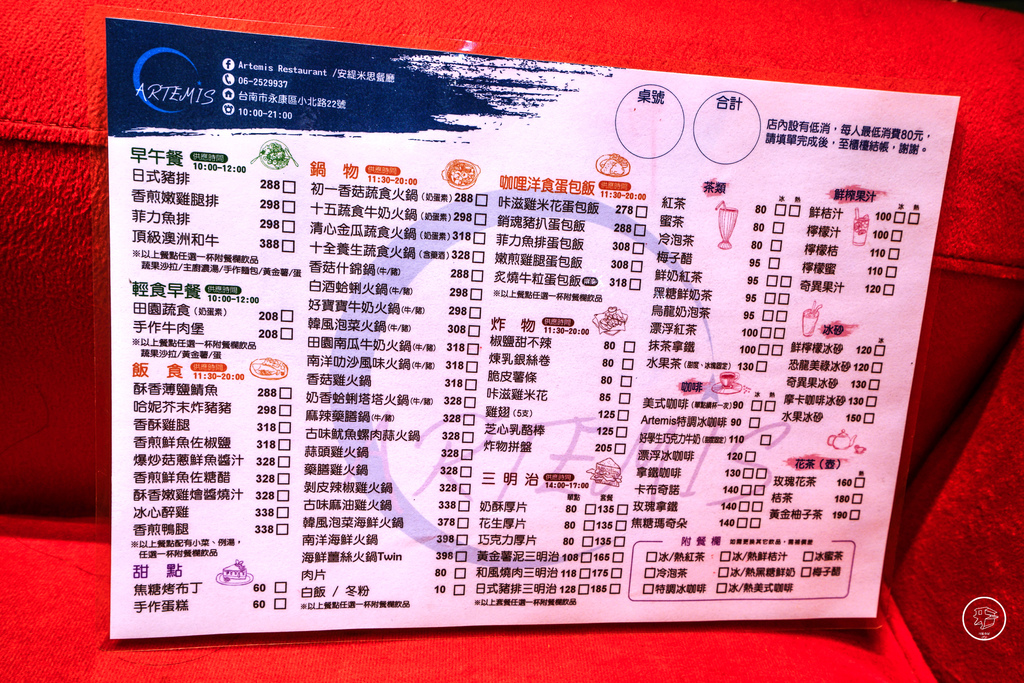 ARTEMIS
Artemis Restaurant /安緹米思餐廳
06-2529937
台南市永康區小北路22號
10:00-21:00
桌號
合計
店內設有低消，每人最低消費80元，
請填單完成後，至櫃檯結帳，謝謝。
早午餐 供應時間 10:00-12:00
日式豬排 288
香煎嫩雞腿排 298
菲力魚排 298
頂級澳洲和牛 388
※以上餐點任選一杯附餐欄飲品
蔬果沙拉/主廚濃湯/手作麵包/黃金薯/蛋
輕食早餐 供應時間 10:00-12:00
田園蔬食(奶蛋素) 208
手作牛肉堡 208
※以上餐點任選一杯附餐欄飲品
蔬果沙拉/黃金薯/蛋
飯食 供應時間 11:30-20:00
酥香薄鹽鯖魚 288
哈妮芥末炸豬豬 298
香酥雞腿 318
香煎鮮魚佐椒鹽 318
爆炒菇蔥鮮魚醬汁 328
香煎鮮魚佐糖醋 328
酥香嫩雞燴醬燒汁 328
冰心醉雞 338
香煎鴨腿 338
※以上餐點配有小菜、例湯，
任選一杯附餐欄飲品
甜點
焦糖烤布丁 60
手作蛋糕 60
鍋物 供應時間 11:30-20:00
初一香菇蔬食火鍋(奶蛋素) 288
十五蔬食牛奶火鍋(奶蛋素) 298
清心金瓜蔬食火鍋(奶蛋素) 318
十全養生蔬食火鍋(含藥酒) 328
香菇什錦鍋(牛/豬) 288
白酒蛤蜊火鍋(牛/豬) 298
好寶寶牛奶火鍋(牛/豬) 298
韓風泡菜火鍋(牛/豬) 308
田園南瓜牛奶火鍋(牛/豬) 318
南洋叻沙風味火鍋(牛/豬) 318
香菇雞火鍋 318
奶香蛤蜊塔塔火鍋(牛/豬) 328
麻辣藥膳鍋(牛/豬) 328
古味魷魚螺肉蒜火鍋 328
蒜頭雞火鍋 328
藥膳雞火鍋 328
剝皮辣椒雞火鍋 328
古味麻油雞火鍋 338
韓風泡菜海鮮火鍋 378
南洋海鮮火鍋 398
海鮮薑絲火鍋Twin 398
肉片 80
白飯 / 冬粉 10
※以上餐點任選一杯附餐欄飲品
咖哩洋食蛋包飯 供應時間 11:30-20:00
咔滋雞米花蛋包飯 278
銷魂豬扒蛋包飯 288
菲力魚排蛋包飯 308
嫩煎雞腿蛋包飯 308
炙燒牛粒蛋包飯 318
※以上餐點任選一杯附餐欄飲品
炸物 供應時間 11:30-20:00
椒鹽甜不辣 80
煉乳銀絲卷 80
脆皮薯條 80
咔滋雞米花 85
雞翅(5支) 125
芝心乳酪棒 125
炸物拼盤 205
三明治 供應時間 14:00-17:00
單點 套餐
奶酥厚片 80 135
花生厚片 80 135
巧克力厚片 80 135
黃金薯泥三明治 108 165
和風燒肉三明治 118 175
日式豬排三明治 128 185
※以上套餐任選一杯附餐欄飲品
茶類 冰 熱
紅茶 80
蜜茶 80
冷泡茶 80
梅子醋 95
鮮奶紅茶 95
黑糖鮮奶茶 95
烏龍奶茶 95
漂浮紅茶 100
抹茶拿鐵 100
水果茶(甜度、冰塊固定) 130
咖啡 冰 熱
美式咖啡(單點續杯一次) 90
Artemis特調冰咖啡 90
好學生巧克力牛奶(甜度固定) 110
漂浮冰咖啡 120
拿鐵咖啡 130
卡布奇諾 140
玫瑰拿鐵 140
焦糖瑪奇朵 140
鮮榨果汁 冰 熱
鮮桔汁 100
檸檬汁 100
檸檬桔 110
檸檬蜜 110
奇異果汁 120
冰砂 冰
鮮檸檬冰砂 120
恐龍美祿冰砂 120
奇異果冰砂 130
摩卡咖啡冰砂 130
水果冰砂 150
花茶(壺)
玫瑰花茶 160
桔茶 180
黃金柚子茶 190
附餐欄 如需更換其它飲品，需補價差
冰/熱紅茶 冰/熱鮮桔汁 冰蜜茶
冷泡茶 冰/熱黑糖鮮奶 梅子醋
特調冰咖啡 冰/熱美式咖啡